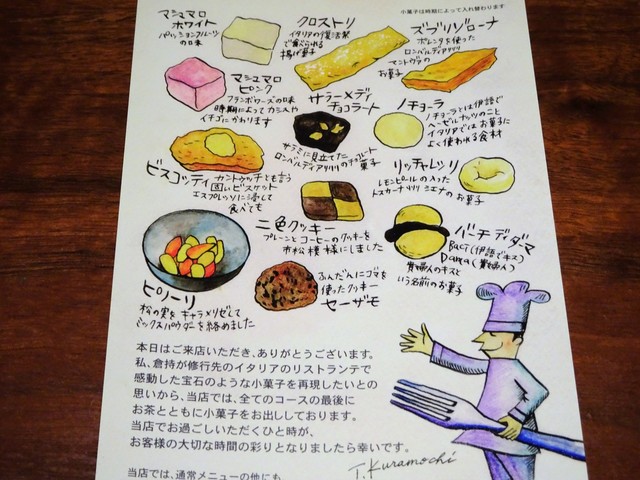 小菓子は時期によって入れ替わります
マシュマロ
ホワイト
パッションフルーツ
の味
クロストリ
イタリアの復活祭
で食べられる
揚げ菓子
ズブリゾローナ
ポレンタを使った
ロンバルディア州
マントヴァの
お菓子
マシュマロ
ピンク
フランボワーズの味
時期によってカシスや
イチゴにかわります
サラーメディ
チョコラート
サラミに見立てた
ロンバルディア州のチョコレート
菓子
ノチョーラ
ノチョーラとは伊語で
ヘーゼルナッツのこと
イタリアではお菓子に
よく使われる食材
ビスゴッティ
カントゥッチとも言う
固いビスケット
エスプレッソに浸して
食べても
リッチャレッリ
レモンピールの入った
トスカーナ州シエナのお菓子
二色クッキー
プレーンとコーヒーのクッキーを
市松模様にしました
バーチディダーマ
Baci(伊語でキス)
Dama(貴婦人)
貴婦人のキスと
いう名前のお菓子
ピノーリ
松の実をキャラメリゼして
ミックスパウダーを絡めました
ふんだんにゴマを
使ったクッキー
セーザモ
本日はご来店いただき、ありがとうございます。
私、倉持が修行先のイタリアのリストランテで
感動した宝石のような小菓子を再現したいとの
思いから、当店では、全てのコースの最後に
お茶とともに小菓子をお出ししております。
当店でお過ごしいただくひと時が、
お客様の大切な時間の彩りとなりましたら幸いです。
T. Kuramochi
当店では、通常メニューの他にも